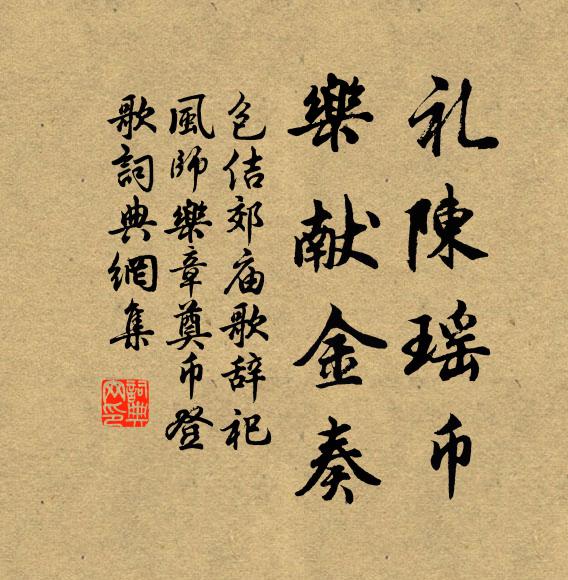 礼陳瑶币
樂献金奏
包佶郊庙歌辞祀
風師樂章奠币登
歌詞典網集
詞典
网印